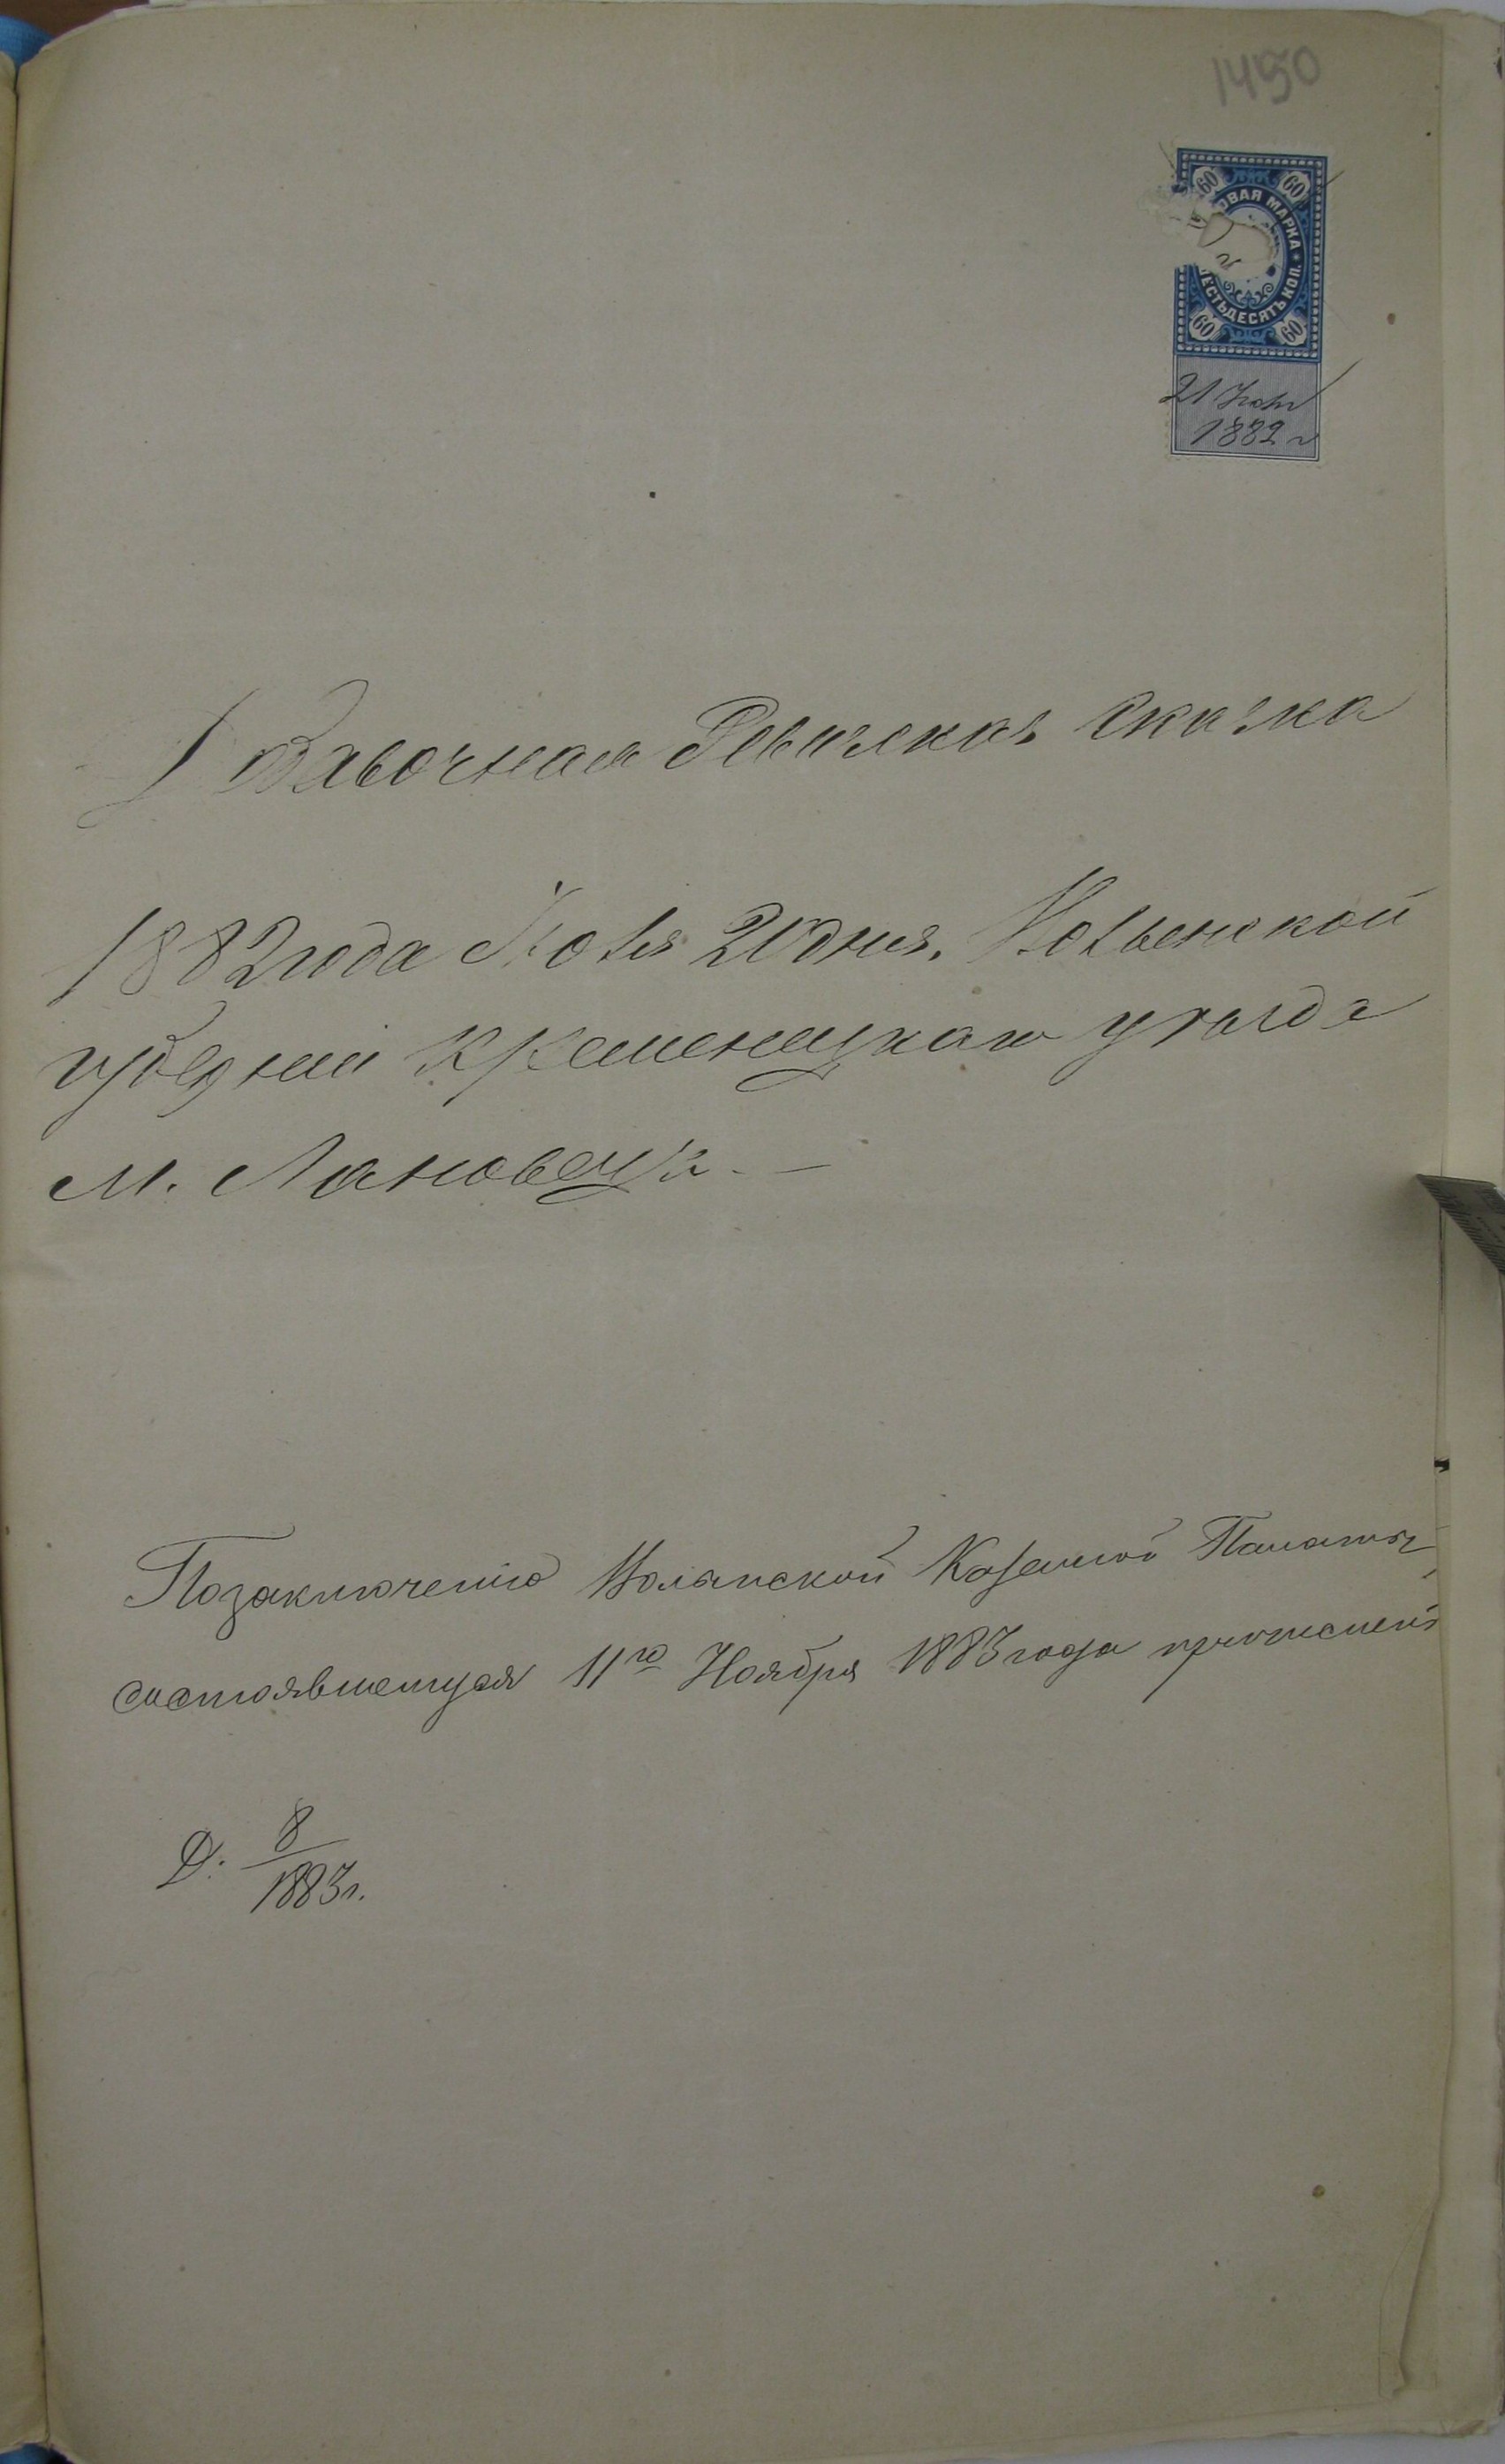 1450
60 60
ОВАЯ МАРКА
ЕСТЬДЕСЯТЪ КОП.
60 60
21 Іюля
1882 г
Добавочная Ревизская сказка
1882 года Іюля 20 дня. Волынской
губерніи Кременецкаго уѣзда
м. Лановецъ. —
По заключенію Волынской Казенной Палаты,
состоявшемуся 11го Ноября 1883 года
Д. 8
1883 г.